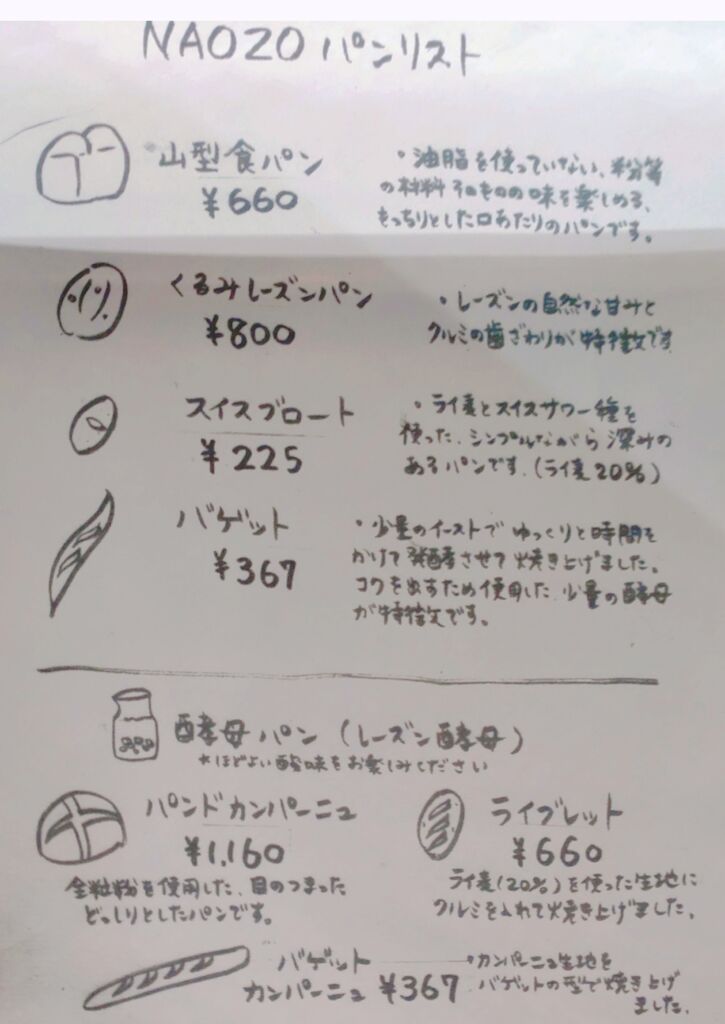 NAOZO パンリスト
山型食パン
¥660
・油脂を使っていない、粉等
の材料そのものの味を楽しめる、
もっちりとした口あたりのパンです。
くるみレーズンパン
¥800
・レーズンの自然な甘みと
クルミの歯ざわりが特徴です
スイスブロート
¥225
・ライ麦とスイスサワー種を
使った、シンプルながら深みの
あるパンです。(ライ麦20%)
バゲット
¥367
・少量のイーストでゆっくりと時間を
かけて発酵させて焼き上げました。
コクを出すため使用した、少量の酵母
が特徴です。
酵母パン (レーズン酵母)
*ほどよい酸味をお楽しみください
パンドカンパーニュ
¥1,160
全粒粉を使用した、目のつまった
どっしりとしたパンです。
ライブレット
¥660
ライ麦(20%)を使った生地に
クルミを入れて焼き上げました。
バゲット
カンパーニュ ¥367
・カンパーニュ生地を
バゲットの型で焼き上げ
ました。